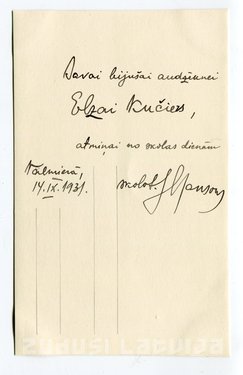 Savai bijušai audzēknei
Elzai Kučiers,
atmiņai no skolas dienām
Valmierā,
14.IX.1931.
skolot.
ZUDUSI LATVIJA